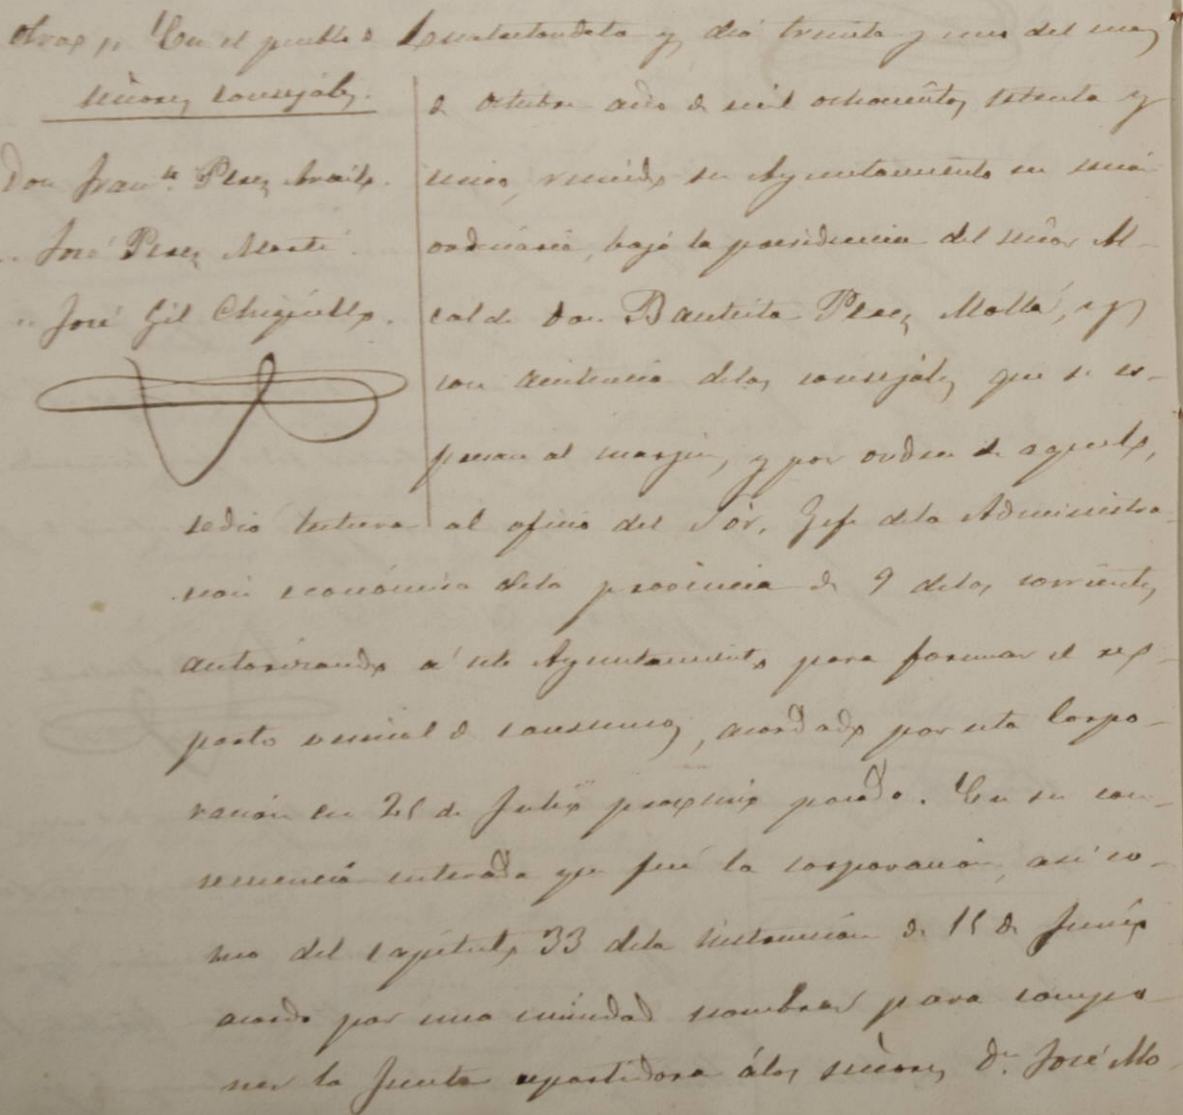 otras,, En el pueblo de Cuatretondeta y dia treinta y uno del mes
Señores consejales.
de octubre año de mil ochocientos setenta y
Don Fran.co Perez Arails.
cinco, reunido su Ayuntamiento en sesión
,, José Perez Martí.
ordinaria, bajo la presidencia del señor Al-
,, José Gil Chiquillo.
calde don Bautista Perez Moltá, y
con asistencia delos consejales que se es-
presan al margen, y por orden de aquello,
sedió lectura al oficio del Sór. Gefe dela Administra
ción económica dela provincia de 9 delos corrientes,
autorizando a este Ayuntamiento para formar el rep-
parto vecinal de consumos, acordado por esta Corpo-
ración en 25 de Julio proximo pasado. En su con-
secuencia enterada que fué la corporación, asi co-
mo del capitulo 33 dela instrucción de 15 de Junio
acordo por una nimidad nombrar para compo
ner la Junta repartidora álos señores D.n José Mo